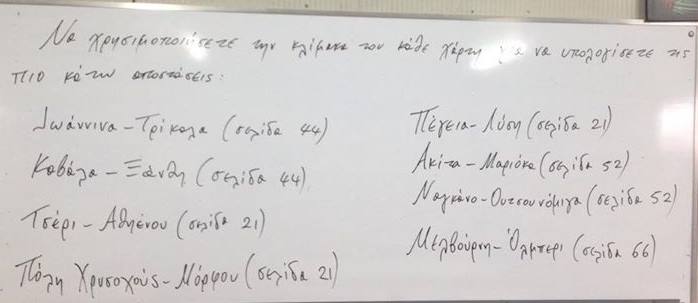 Να χρησιμοποιήσετε την κλίμακα του κάθε χάρτη για να υπολογίσετε τις
πιο κάτω αποστάσεις:
Ιωάννινα - Τρίκαλα (σελίδα 44)
Καβάλα - Ξάνθη (σελίδα 44)
Τσέρι - Αθηένου (σελίδα 21)
Πόλη Χρυσοχούς - Μόρφου (σελίδα 21)
Πέγεια - Λύση (σελίδα 21)
Ακίτα - Μαριόκα (σελίδα 52)
Ναγκάνο - Ουτσουνόμιγα (σελίδα 52)
Μελβούρνη - Όλμπερι (σελίδα 66)